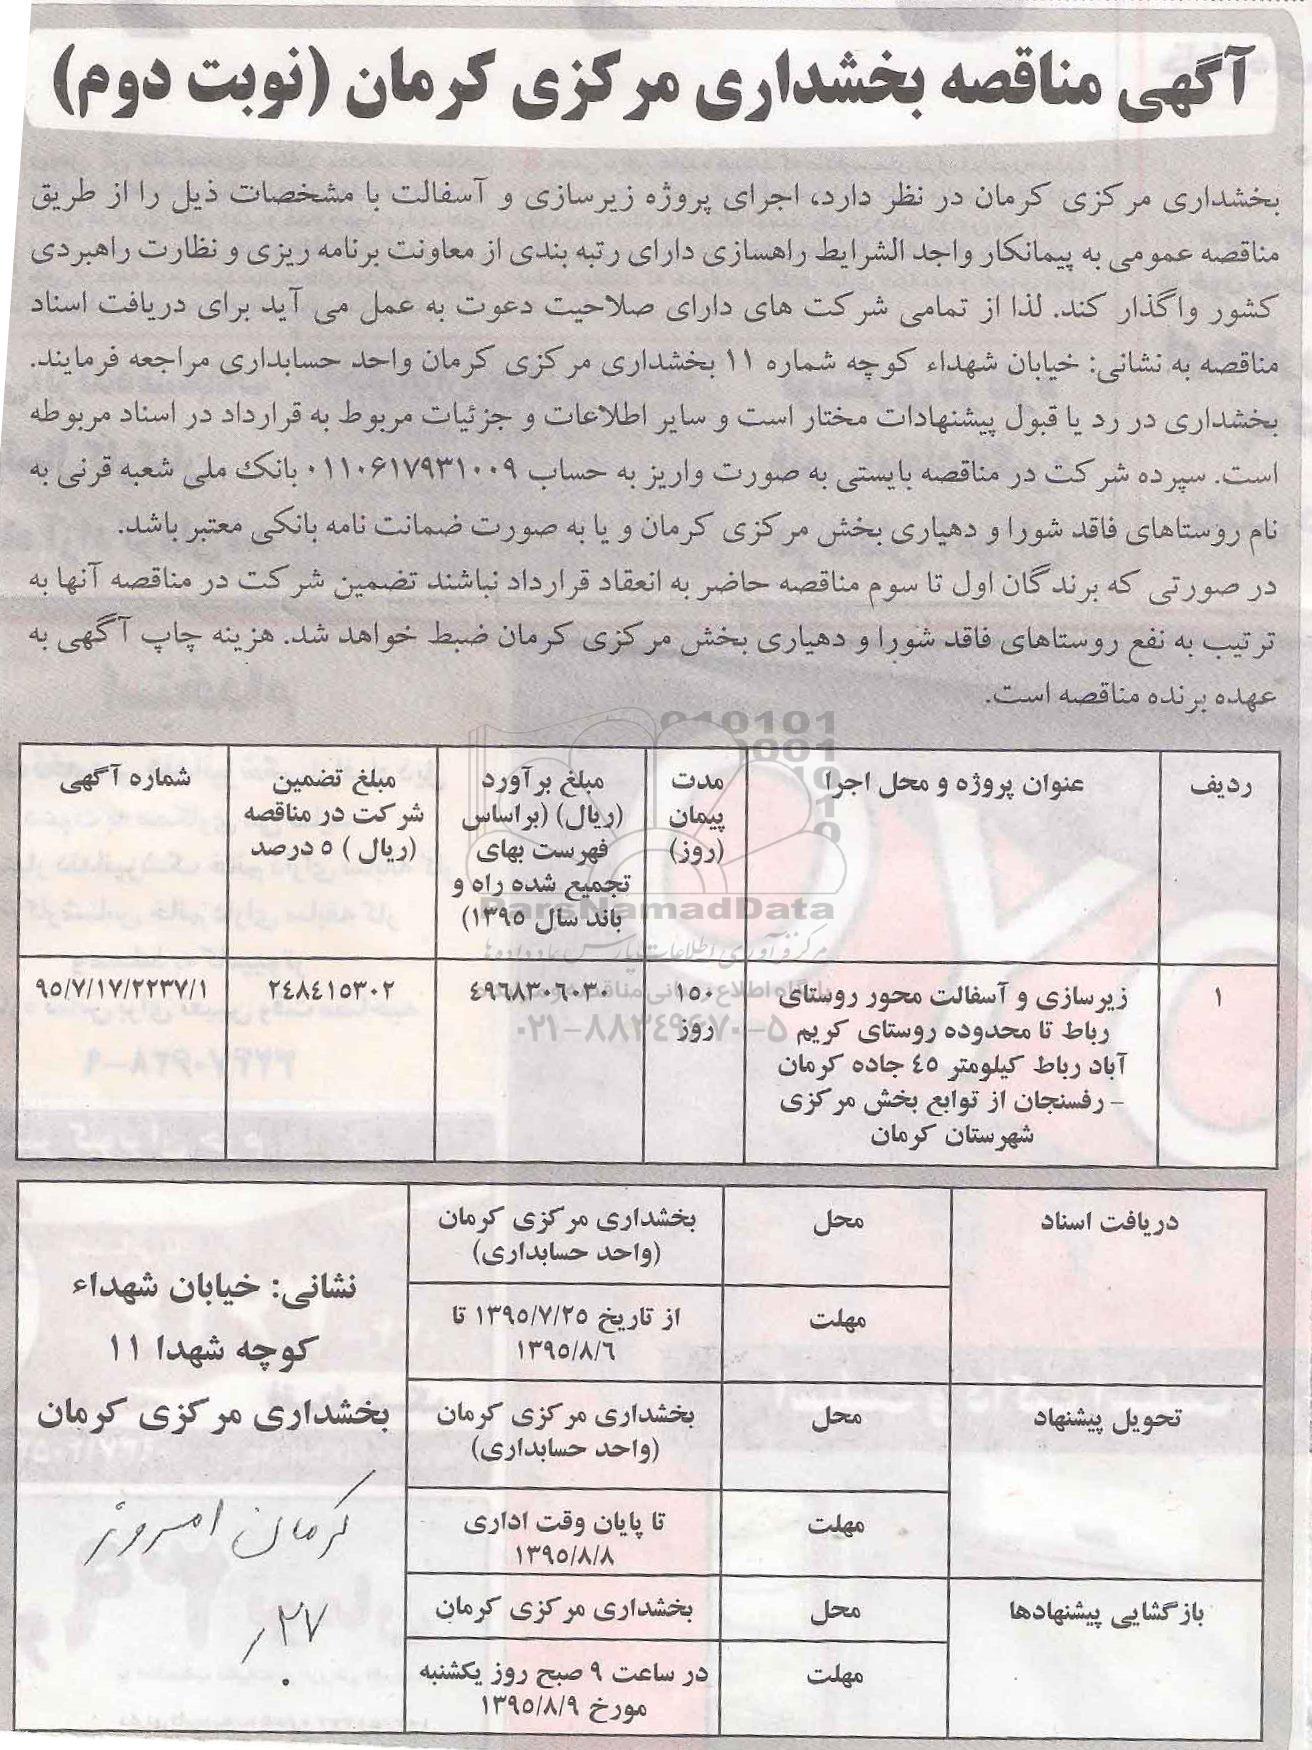 آگهی مناقصه بخشداری مرکزی کرمان (نوبت دوم)
بخشداری مرکزی کرمان در نظر دارد، اجرای پروژه زیرسازی و آسفالت با مشخصات ذیل را از طریق
مناقصه عمومی به پیمانکار واجد الشرایط راهسازی دارای رتبه بندی از معاونت برنامه ریزی و نظارت راهبردی
کشور واگذار کند. لذا از تمامی شرکت های دارای صلاحیت دعوت به عمل می آید برای دریافت اسناد
مناقصه به نشانی: خیابان شهداء کوچه شماره ۱۱ بخشداری مرکزی کرمان واحد حسابداری مراجعه فرمایند.
بخشداری در رد یا قبول پیشنهادات مختار است و سایر اطلاعات و جزئیات مربوط به قرارداد در اسناد مربوطه
است. سپرده شرکت در مناقصه بایستی به صورت واریز به حساب ۰۱۱۰۶۱۷۹۳۱۰۰۹ بانک ملی شعبه قرنی به
نام روستاهای فاقد شورا و دهیاری بخش مرکزی کرمان و یا به صورت ضمانت نامه بانکی معتبر باشد.
در صورتی که برندگان اول تا سوم مناقصه حاضر به انعقاد قرارداد نباشند تضمین شرکت در مناقصه آنها به
ترتیب به نفع روستاهای فاقد شورا و دهیاری بخش مرکزی کرمان ضبط خواهد شد. هزینه چاپ آگهی به
عهده برنده مناقصه است.
ردیف
عنوان پروژه و محل اجرا
مدت
پیمان
(روز)
مبلغ برآورد
(ریال) (براساس
فهرست بهای
تجمیع شده راه و
باند سال ۱۳۹۵)
مبلغ تضمین
شرکت در مناقصه
(ریال ) ۵ درصد
شماره آگهی
۱
زیرسازی و آسفالت محور روستای
رباط تا محدوده روستای کریم
آباد رباط کیلومتر ٤٥ جاده کرمان
– رفسنجان از توابع بخش مرکزی
شهرستان کرمان
۱۵۰
روز
٤٩٦٨٣٠٦٠٣٠
٢٤٨٤١٥٣٠٢
۹۵/۷/۱۷/۲۲۳۷/۱
ParsNamadData
مرکز فرآوری اطلاعات پارس نماد داده ها
۰۲۱-۸۸۳۴۹۶۷۰-۵
دریافت اسناد
محل
بخشداری مرکزی کرمان
(واحد حسابداری)
مهلت
از تاریخ ۱۳۹۵/۷/۲۵ تا
۱۳۹۵/۸/٦
تحویل پیشنهاد
محل
بخشداری مرکزی کرمان
(واحد حسابداری)
مهلت
تا پایان وقت اداری
۱۳۹۵/۸/۸
بازگشایی پیشنهادها
محل
بخشداری مرکزی کرمان
مهلت
در ساعت ۹ صبح روز یکشنبه
مورخ ۱۳۹۵/۸/۹
نشانی: خیابان شهداء
کوچه شهدا ۱۱
بخشداری مرکزی کرمان
کرمان امروز
۲۷ر